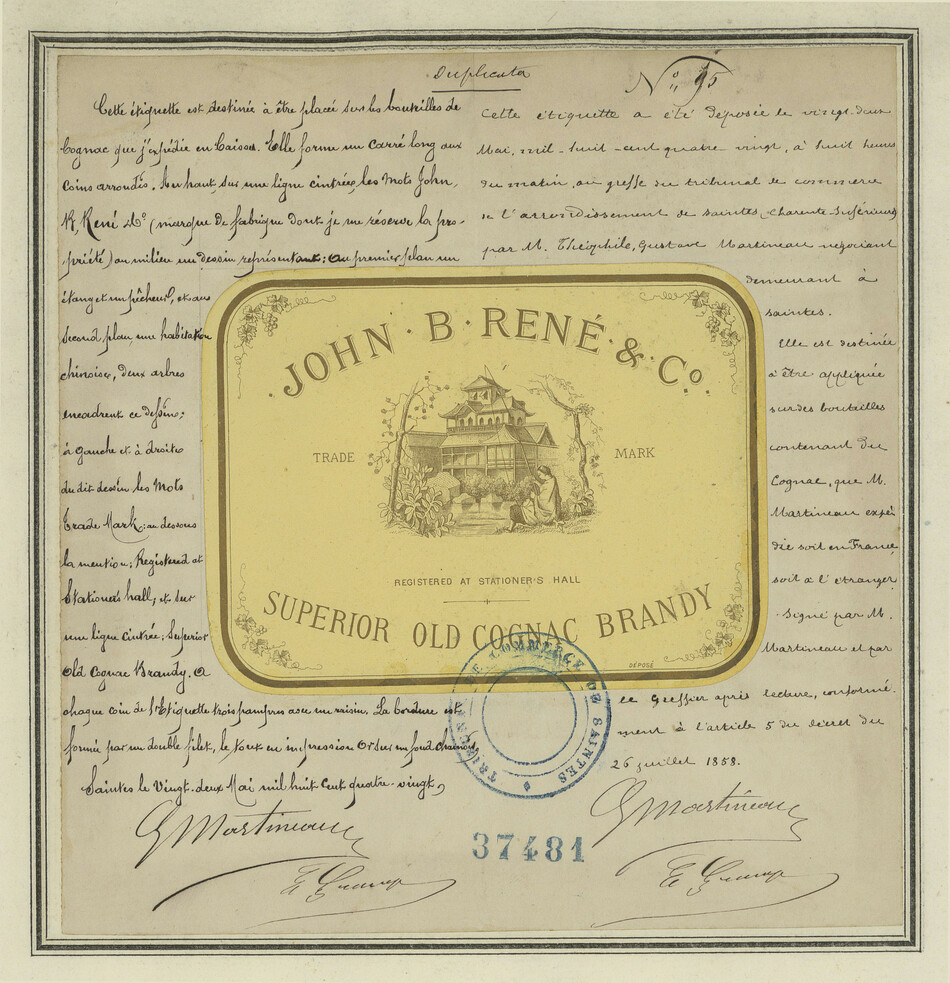 Duplicata
N° 95
Cette étiquette est destinée à être placé sur les bouteilles de
Cognac que j'expédie en Caisses. Elle forme un carré long aux
coins arrondis, Au haut, sur une ligne cintrée, les Mots John,
B, René &° (marque de fabrique dont je me réserve la pro-
priété) au milieu un dessin représentant: Au premier plan un
étang et un pêcheur, et au
second plan une habitation
chinoise, deux arbres
encadrent ce dessin;
à gauche et à droite
du dit dessin les Mots
Trade Mark; au dessous
la mention; Registered at
Stationer's hall; et sur
une ligne cintrée; Superior
Old Cognac Brandy. A
chaque coin de l'Etiquette trois pampres avec un raisin. La bordure est
formée par un double filet, le tout en impression Or sur un fond chamois,
Saintes le Vingt-deux Mai mil huit Cent quatre-vingt,
G Martineau
Cette étiquette a été déposée le vingt deux
Mai, mil-huit-cent quatre vingt, à huit heures
du matin, au greffe du tribunal de commerce
de l'arrondissement de saintes, Charente-Inférieure
par M. Théophile, Gustave Martineau négociant
demeurant à
saintes.
Elle est destinée
à être appliquée
sur des bouteilles
contenant du
Cognac, que M.
Martineau expé
die soit en France
soit à l'étranger
Signé par M.
Martineau et par
le Greffier après lecture, conformé-
ment à l'article 5 du décret du
26 juillet 1858.
G Martineau
JOHN · B · RENÉ · & · Co.
TRADE MARK
REGISTERED AT STATIONER'S HALL
SUPERIOR OLD COGNAC BRANDY
DÉPOSÉ
TRIBUNAL DE COMMERCE DE SAINTES
37481